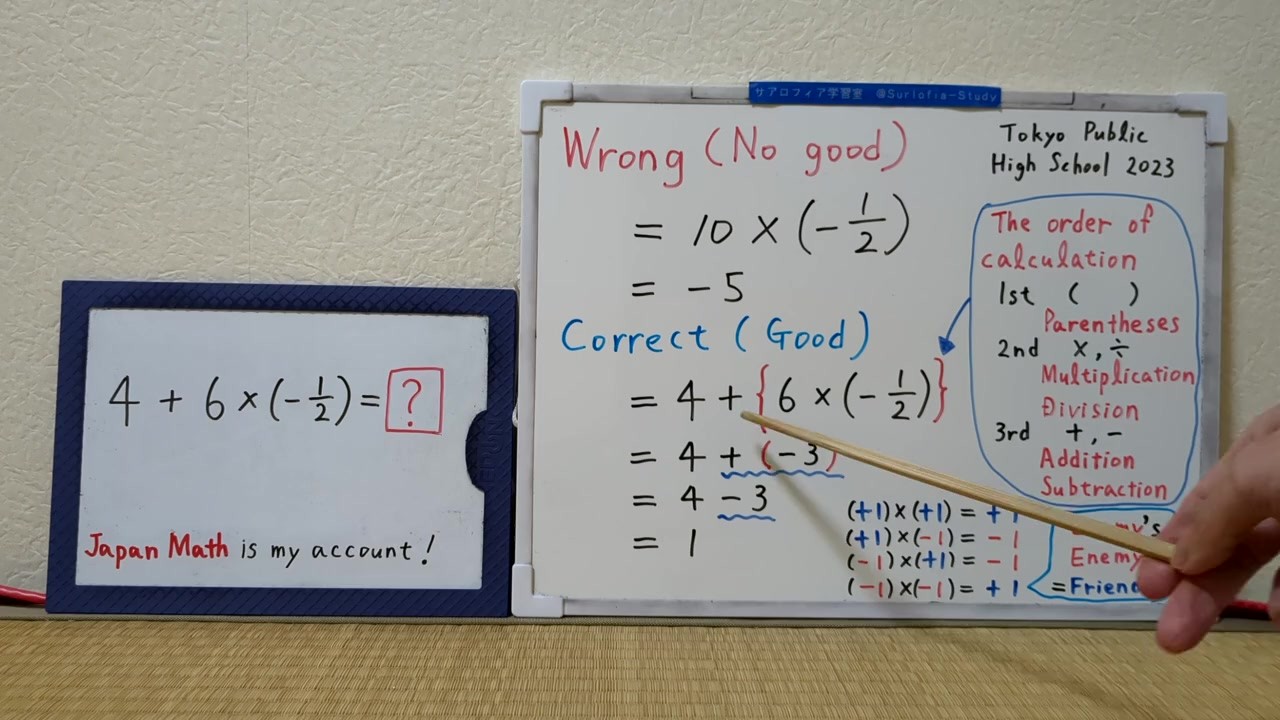 4 + 6 × (- 1/2) = ?
Japan Math is my account!
サアロフィア学習室 @Surlofia-Study
Wrong (No good)
= 10 × (- 1/2)
= -5
Correct (Good)
= 4 + { 6 × (- 1/2) }
= 4 + (-3)
= 4 - 3
= 1
Tokyo Public
High School 2023
The order of
calculation
1st ( )
Parentheses
2nd ×, ÷
Multiplication
Division
3rd +, -
Addition
Subtraction
(+1)×(+1) = +1
(+1)×(-1) = -1
(-1)×(+1) = -1
(-1)×(-1) = +1
Enemy
=Friend